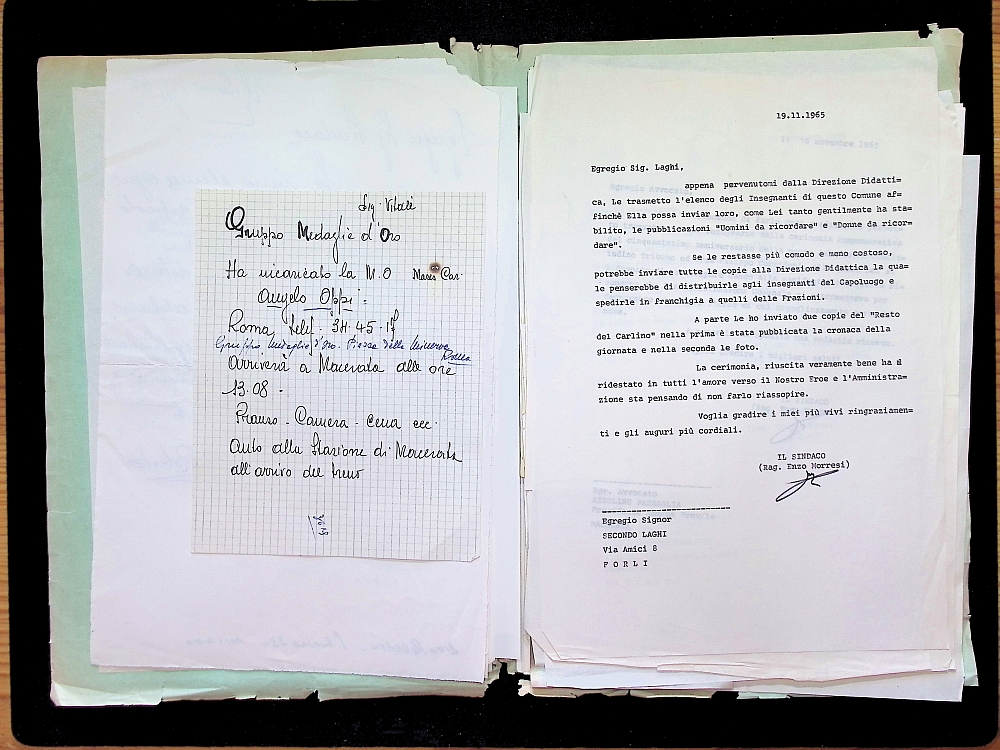 Sig. Vitali
Gruppo Medaglie d'Oro
Ha incaricato la M.O Mares Car.
Angelo Oppi =
Roma telef. 34.45.17
Gruppo Medaglie d'Oro. Piazza della Minerva
Roma
Arriverà a Macerata alle ore
13.08.
Pranzo - Camera - cena ecc.
Auto alla Stazione di Macerata
all'arrivo del treno
19.11.1965
Egregio Sig. Laghi,
appena pervenutomi dalla Direzione Didatti=
ca, Le trasmetto l'elenco degli Insegnanti di questo Comune af=
finchè Ella possa inviar loro, come Lei tanto gentilmente ha sta=
bilito, le pubblicazioni "Uomini da ricordare" e "Donne da ricor=
dare".
Se le restasse più comodo e meno costoso,
potrebbe inviare tutte le copie alla Direzione Didattica la qua=
le penserebbe di distribuirle agli insegnanti del Capoluogo e
spedirle in franchigia a quelli delle Frazioni.
A parte Le ho inviato due copie del "Resto
del Carlino" nella prima è stata pubblicata la cronaca della
giornata e nella seconda le foto.
La cerimonia, riuscita veramente bene ha
ridestato in tutti l'amore verso il Nostro Eroe e l'Amministra=
zione sta pensando di non farlo riassopire.
Voglia gradire i miei più vivi ringraziamen=
ti e gli auguri più cordiali.
IL SINDACO
(Rag. Enzo Morresi)
Egregio Signor
SECONDO LAGHI
Via Amici 8
F O R L I